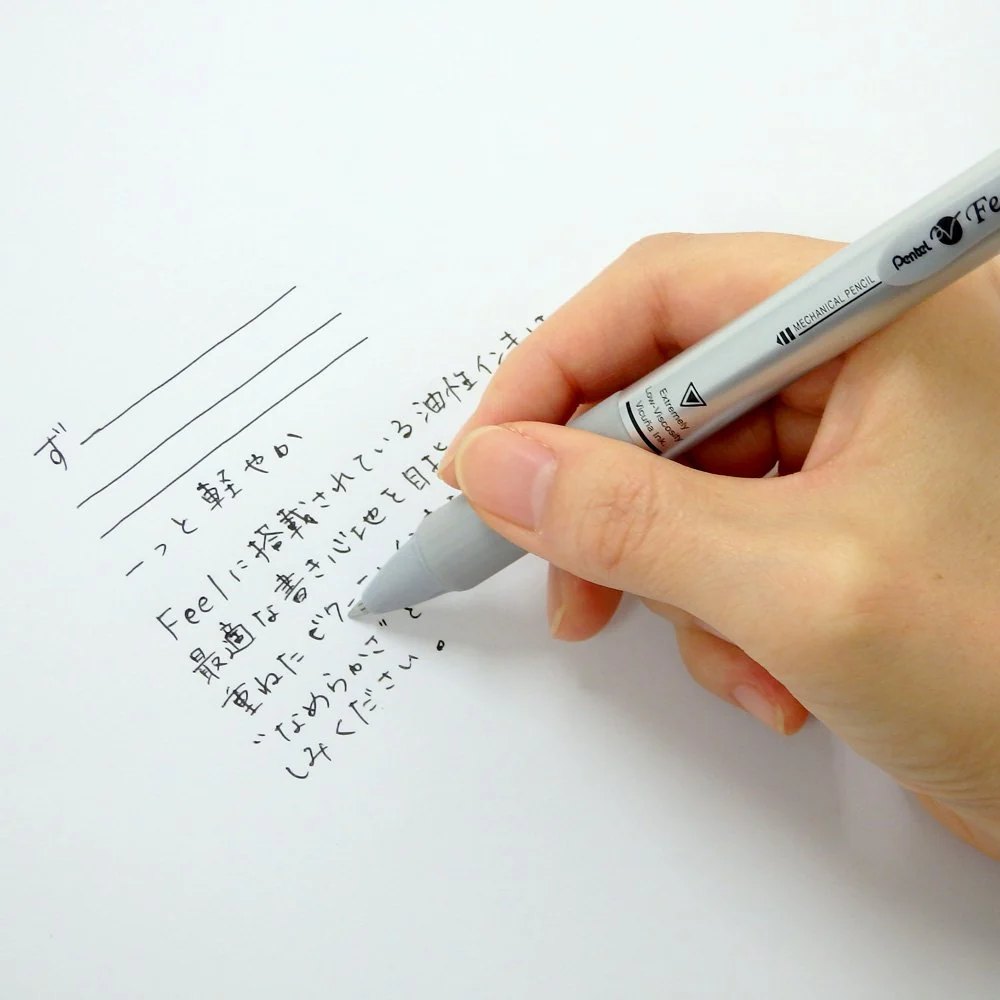 ず
ーっと軽やか
Feelに搭載されている油性インキは
最適な書き心地を目
重ねたビク
"なめらかさ"を
しみください。
Pentel
MECHANICAL PENCIL
Extremely
Low-Viscosity
Vicuña Ink.